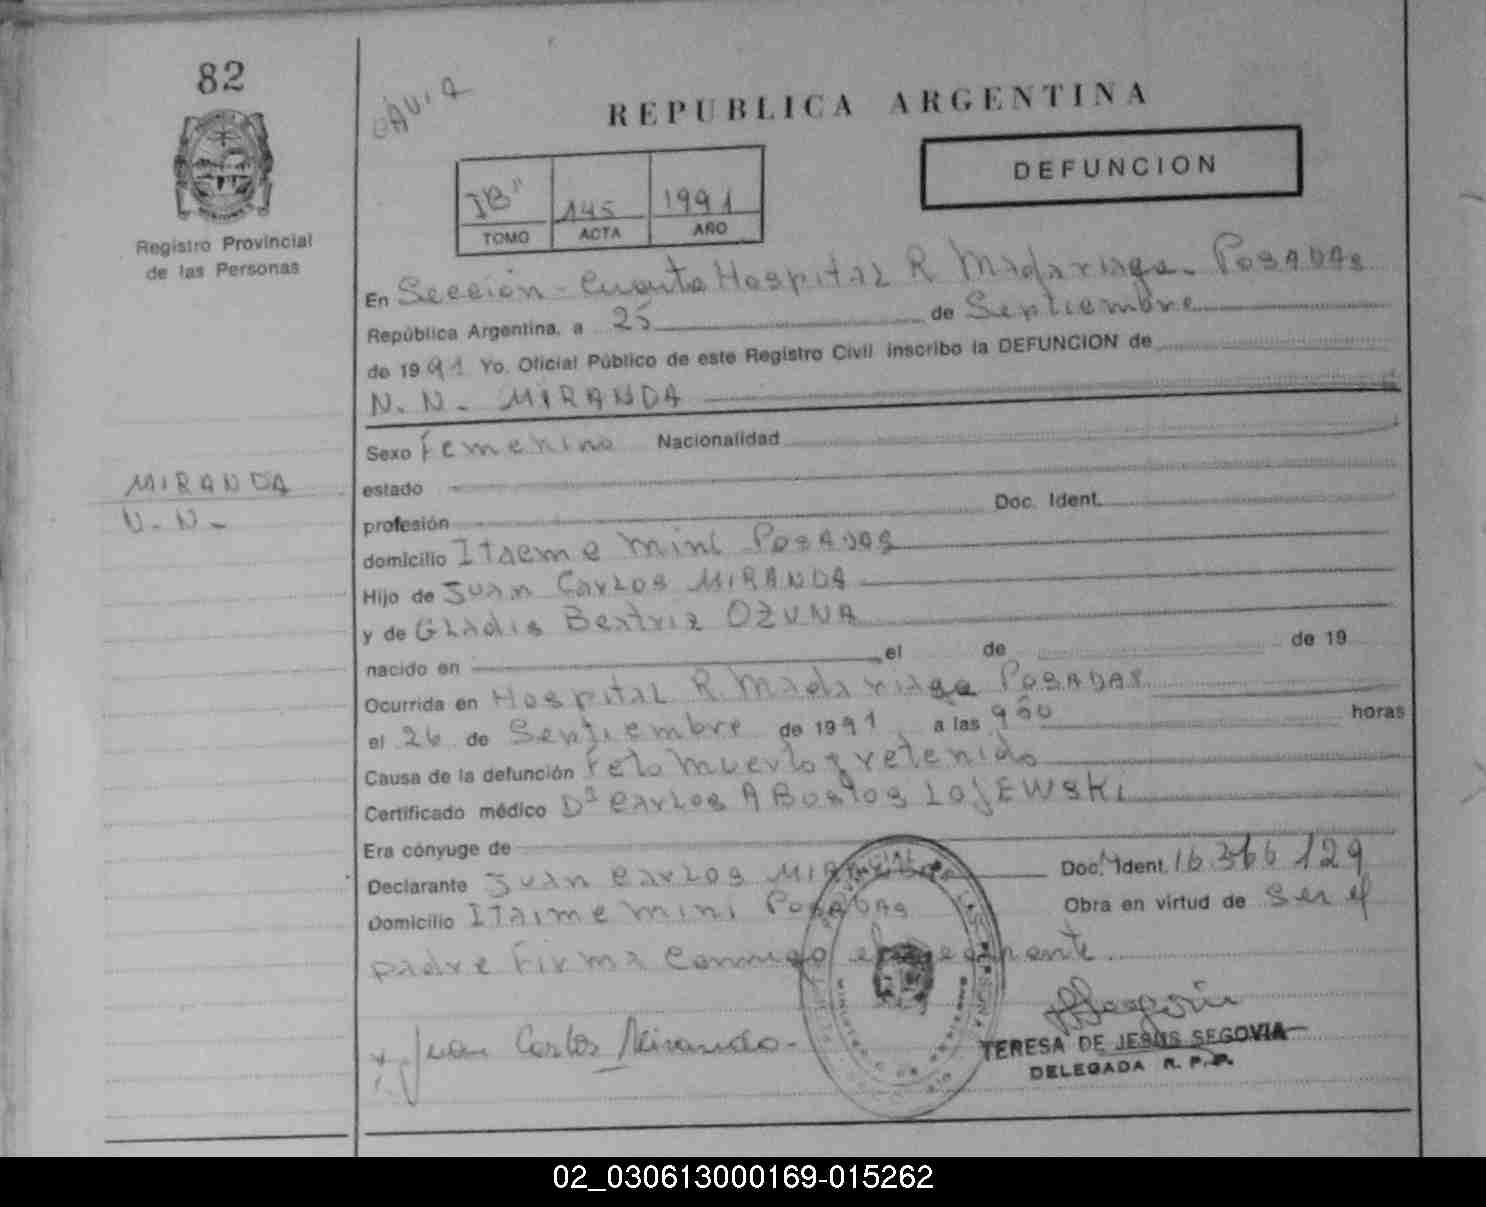 82
REPUBLICA ARGENTINA
DEFUNCION
"B" 145 1991
TOMO ACTA AÑO
Registro Provincial
de las Personas
En Sección - Cuarta Hospital R Madariaga - Posadas
República Argentina, a 25 de Septiembre
de 1991 Yo. Oficial Público de este Registro Civil inscribo la DEFUNCION de
N. N. - MIRANDA
MIRANDA
N. N. -
Sexo Femenino Nacionalidad
estado
profesión Doc. Ident.
domicilio Itaeme mini Posadas
Hijo de Juan Carlos MIRANDA
y de Gladis Beatriz OZUNA
nacido en el de de 19
Ocurrida en Hospital R. Madariaga Posadas
el 26 de Septiembre de 1991 a las 900 horas
Causa de la defunción Feto muerto y retenido
Certificado médico Dr Carlos A Bostos LOJEWSKI
Era cónyuge de
Declarante Juan Carlos MIRANDA Doc. Ident. 16366129
Domicilio Itaime mini Posadas Obra en virtud de Ser el
padre Firma conmigo el compareciente
Juan Carlos Miranda.
TERESA DE JESUS SEGOVIA
DELEGADA R. P. P.
02_030613000169-015262